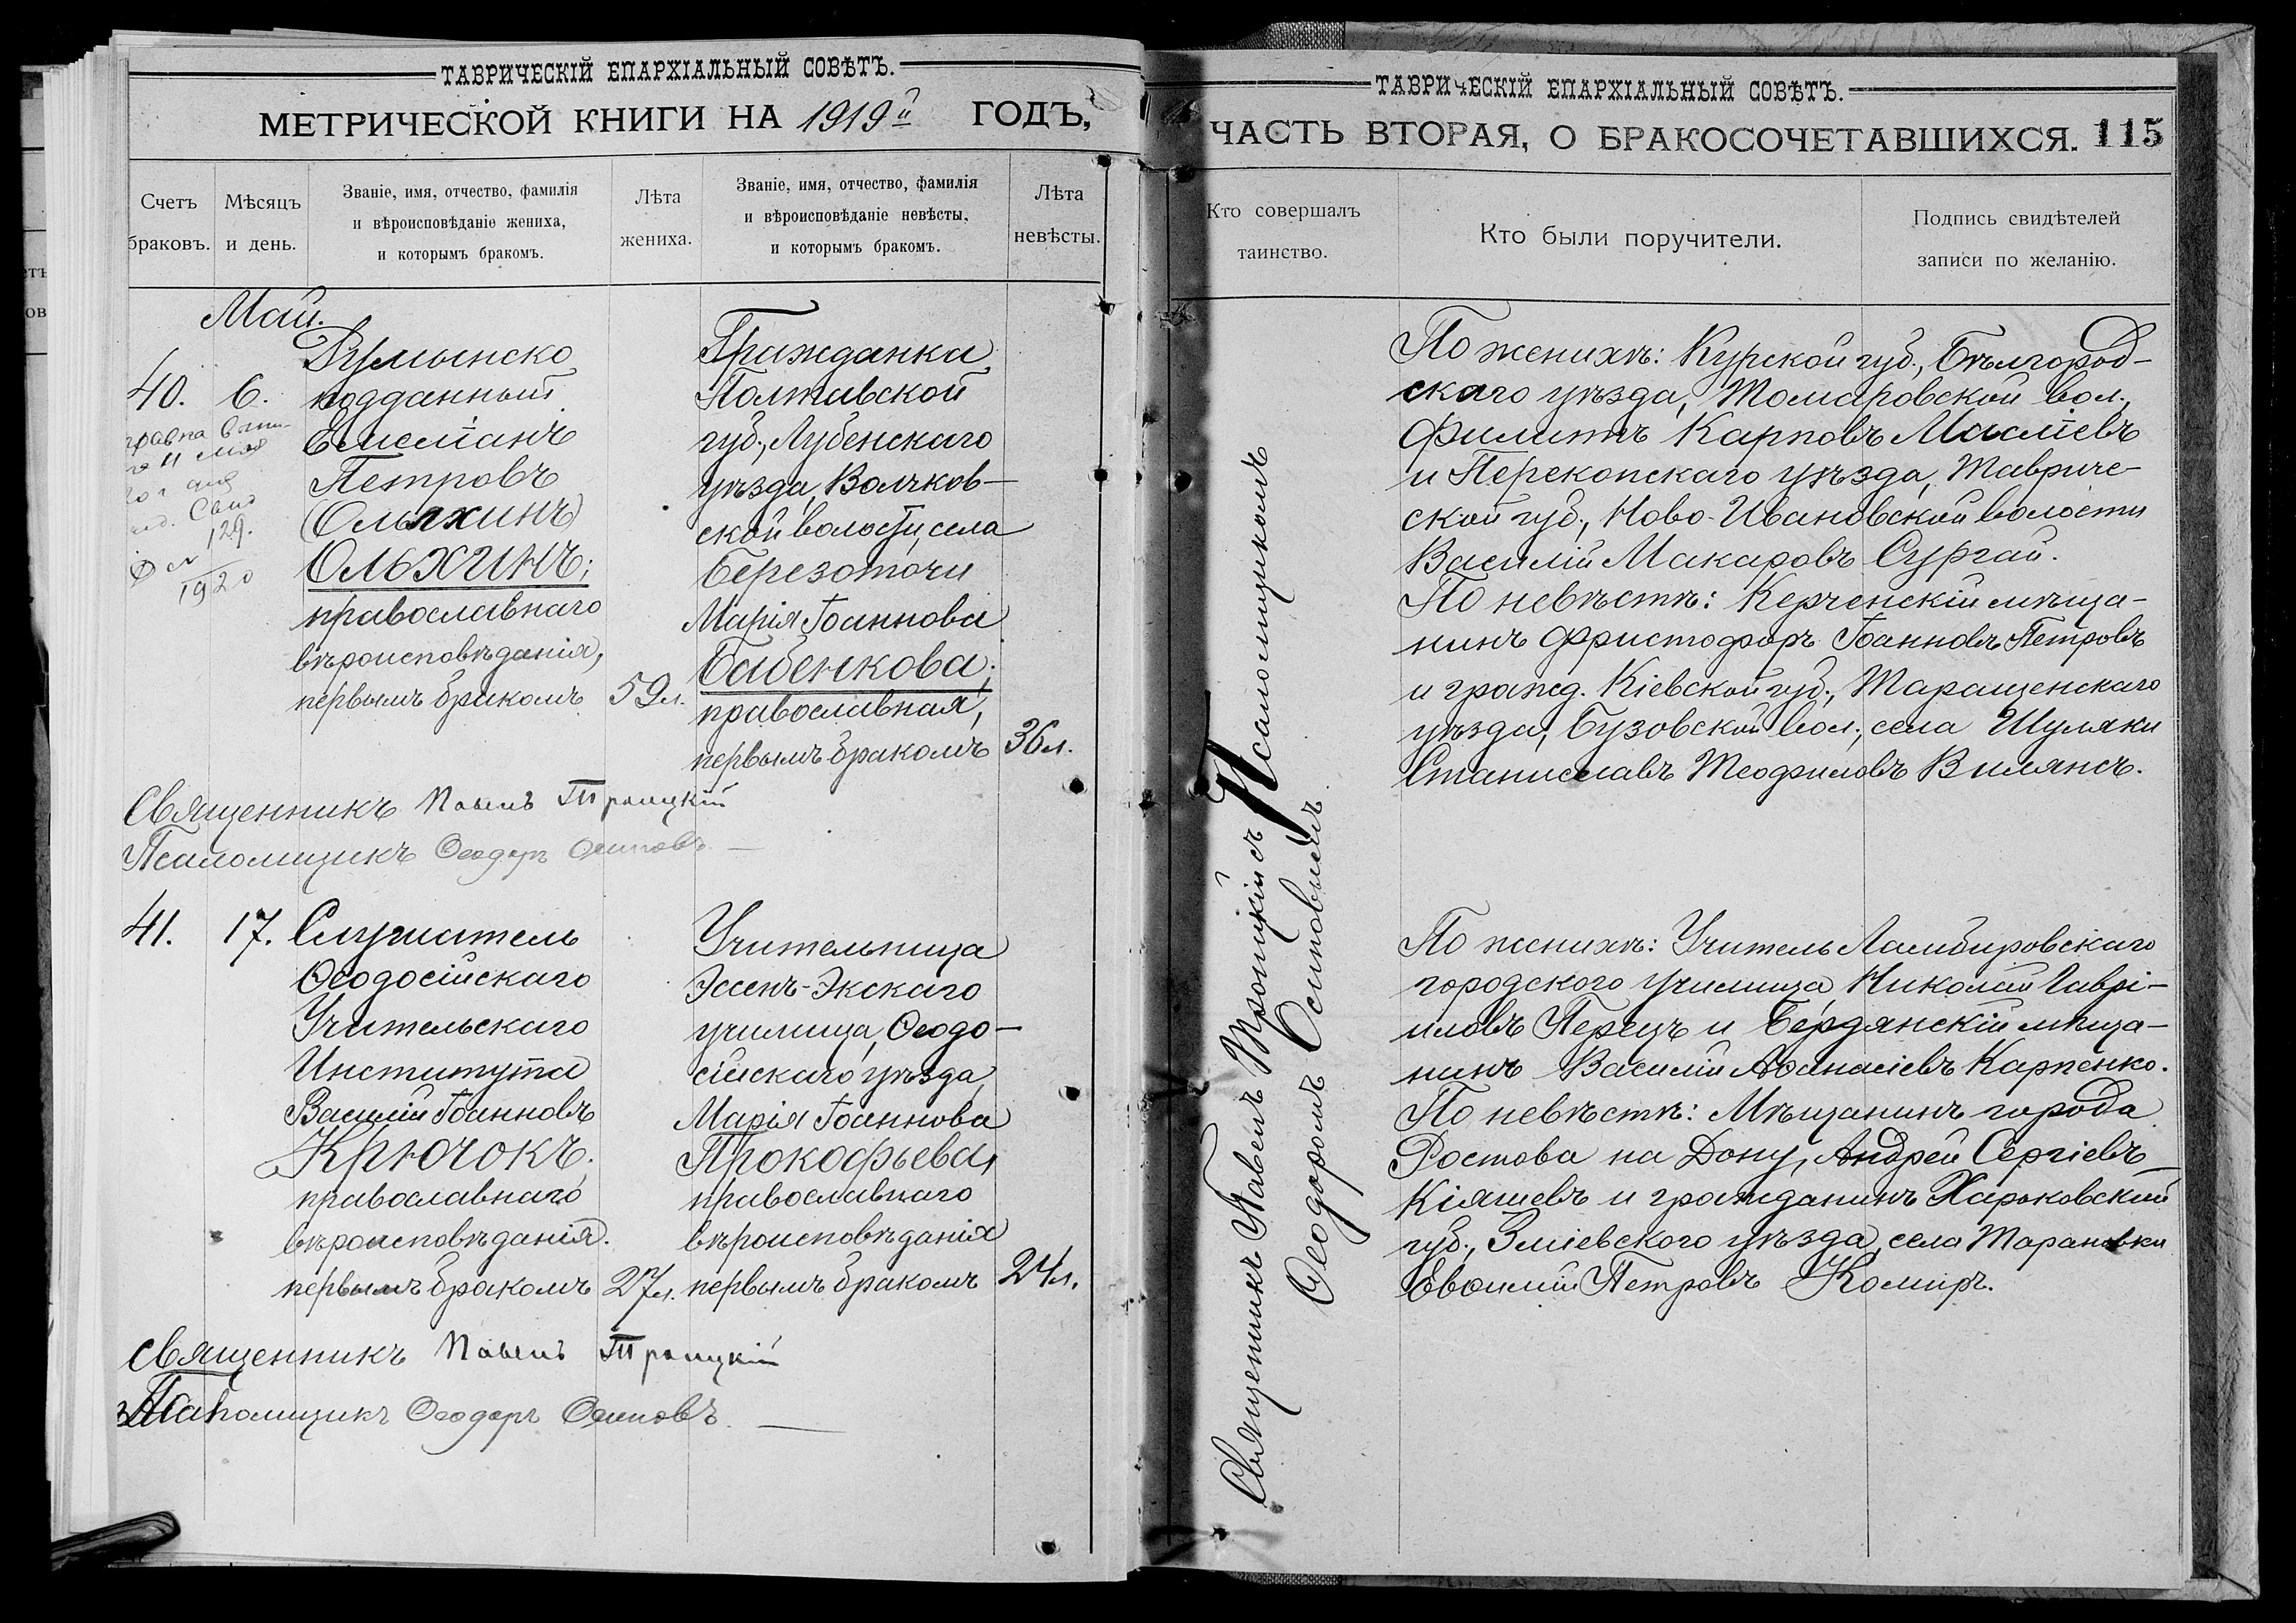 ТАВРИЧЕСКІЙ ЕПАРХІАЛЬНЫЙ СОВѢТЪ.
МЕТРИЧЕСКОЙ КНИГИ НА 1919й ГОДЪ,
Счетъ браковъ.
Мѣсяцъ и день.
Званіе, имя, отчество, фамилія
и вѣроисповѣданіе жениха,
и которымъ бракомъ.
Лѣта
жениха.
Званіе, имя, отчество, фамилія
и вѣроисповѣданіе невѣсты,
и которымъ бракомъ.
Лѣта
невѣсты.
Май.
40. 6.
11 мая
129.
1920
Румынско
подданный
Емеліанъ
Петровъ
(Ольхинъ)
ОЛЬХИНЪ;
православнаго
вѣроисповѣданія,
первымъ бракомъ
59 л.
Гражданка
Полтавской
губ., Лубенскаго
уѣзда, Волчков-
ской волости, села
Березоточи
Марія Іоаннова
Бабенкова;
православная,
первымъ бракомъ
36 л.
Священникъ Павелъ Троицкій
Псаломщикъ Ѳеодоръ Осиповъ
41. 17.
Слушатель
Ѳеодосійскаго
Учительскаго
Института
Василій Іоанновъ
Крючокъ.
православнаго
вѣроисповѣданія.
первымъ бракомъ
27 л.
Учительница
Эссенъ-Экскаго
училища, Ѳеодо-
сійскаго уѣзда
Марія Іоаннова
Прокофьева,
православнаго
вѣроисповѣданія
первымъ бракомъ
24 л.
Священникъ Павелъ Троицкій
Псаломщикъ Ѳеодоръ Осиповъ.
ТАВРИЧЕСКІЙ ЕПАРХІАЛЬНЫЙ СОВѢТЪ.
ЧАСТЬ ВТОРАЯ, О БРАКОСОЧЕТАВШИХСЯ. 115
Кто совершалъ
таинство.
Кто были поручители.
Подпись свидѣтелей
записи по желанію.
Священникъ Павелъ Троицкій съ Псаломщикомъ
Ѳеодоромъ Осиповымъ.
По женихѣ: Курской губ., Бѣлгород-
скаго уѣзда, Томаровской вол.,
Филиппъ Карповъ Масліевъ
и Перекопскаго уѣзда, Тавриче-
ской губ., Ново-Ивановской волости
Василій Макаровъ Сургай.
По невѣстѣ: Керченскій мѣща-
нинъ Христофоръ Іоанновъ Петровъ
и гражд. Кіевской губ., Таращенскаго
уѣзда, Бузовской вол., села Шуляки
Станиславъ Теофиловъ Вилянсъ.
По женихѣ: Учитель
городского училища Николай Гаврі-
иловъ Перецъ и Бердянскій мѣща-
нинъ Василій Аѳанасіевъ Карпенко.
По невѣстѣ: Мѣщанинъ города
Ростова на Дону, Андрей Сергіевъ
Кіяшевъ и гражданинъ Харьковской
губ., Зміевского уѣзда, села Тарановки
Евѳимій Петровъ Комиръ.